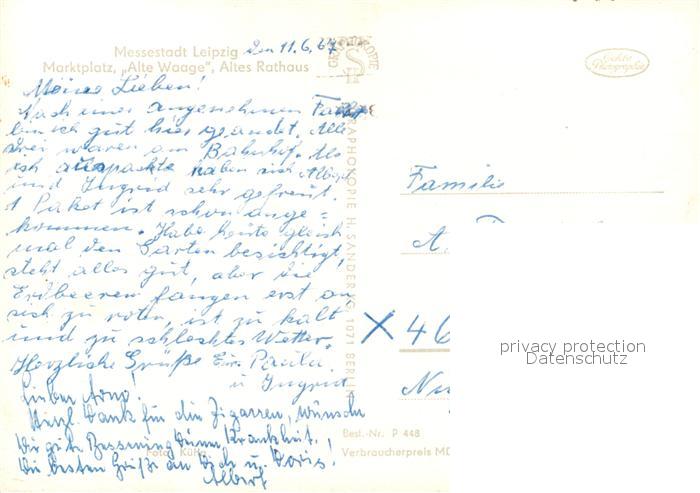 Messestadt Leipzig
Marktplatz, „Alte Waage", Altes Rathaus
Den 11.6.67
Meine Lieben!
Nach einer angenehmen Fahrt
bin ich gut hier gelandet. Alle
drei waren am Bahnhof. Als
ich auspackte haben sich Albert
und Ingrid sehr gefreut.
1 Paket ist schon ange=
kommen. Habe heute gleich
mal den Garten besichtigt,
steht alles gut, aber die
Erdbeeren fangen erst an
sich zu röten, ist zu kalt
und zu schlechtes Wetter.
Herzliche Grüße Eure Paula
u Ingrid
Lieber Arno!
Herzl. Dank für die Zigarren, wünsche
Dir gute Besserung Deiner Krankheit.
Die besten Grüße an Dich u. Doris!
Albert
Foto: Kühn
GRAPHOKOPIE H. SANDER KG 1071 BERLIN
Echte
Photographie
Familie
A.
X 46
privacy protection
Datenschutz
Best.-Nr. P 448
Verbraucherpreis MD